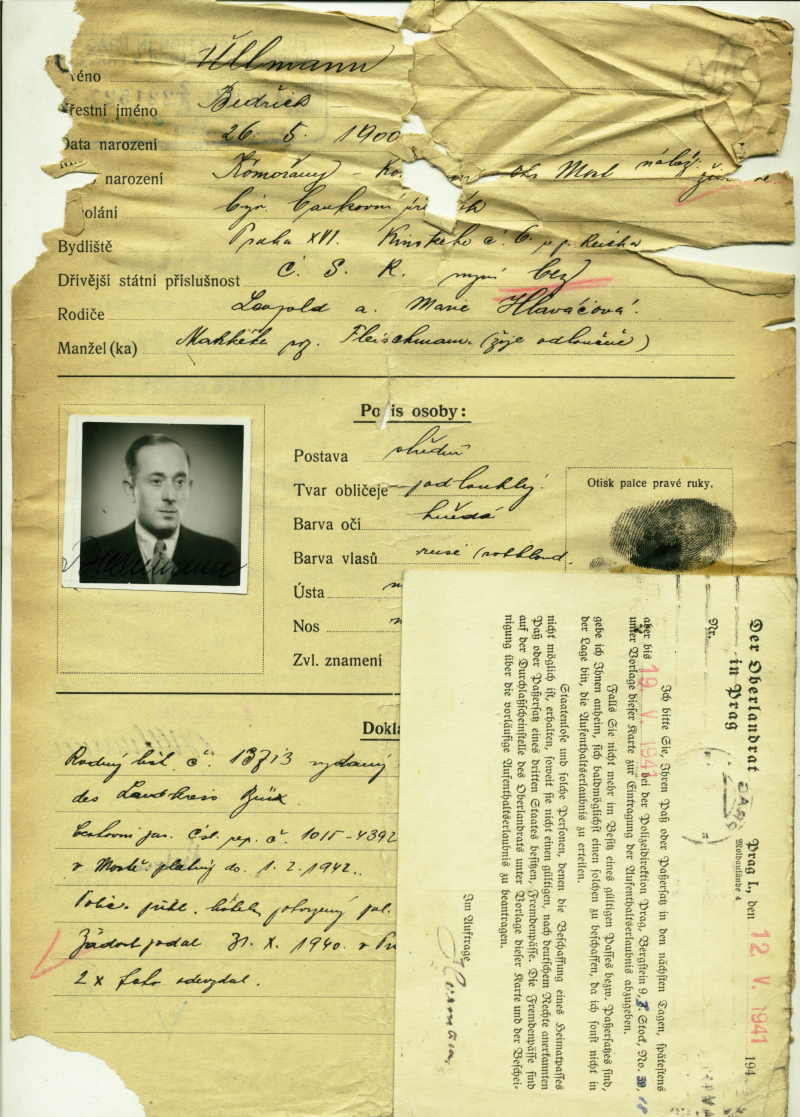 Ullmann
méno
Bedřich
řestní jméno
Data narození 26. 5. 1900
narození Komořany - okr. Most
olání
Bydliště Praha XVI. Kinského č. 6
Dřívější státní příslušnost Č. S. R. nyní bez
Rodiče Leopold a. Marie Hlaváčová.
Manžel (ka) Markéta roz. Fleischmann. (žije odloučeně)
Popis osoby:
Postava střední
Tvar obličeje podlouhlý.
Barva očí hnědá
Barva vlasů
Ústa
Nos
Zvl. znamení
Otisk palce pravé ruky.
Dokla
Rodný list č. vydaný
des Landkreis Brüx
Cestovní pas. Čsl. rep. č. 1015-4392
v Mostě platný do. 1. 2. 1942.
Žádost podal 31. X. 1940. v
2 x foto odevzdal.
Der Oberlandrat
in Prag
Prag I., den 12. V. 1941 194
Moldaulände 4
Nr.
Ich bitte Sie, Ihren Paß oder Paßersatz in den nächsten Tagen, spätestens
aber bis 19. V. 1941 bei der Polizeidirektion Prag, Bergstein 9, Stock, No. 18
unter Vorlage dieser Karte zur Eintragung der Aufenthaltserlaubnis abzugeben.
Falls Sie nicht mehr im Besitz eines gültigen Passes bezw. Paßersatzes sind,
gebe ich Ihnen anheim, sich baldmöglichst einen solchen zu beschaffen, da ich sonst nicht in
der Lage bin, die Aufenthaltserlaubnis zu erteilen.
Staatenlose und solche Personen denen die Beschaffung eines Heimatpasses
nicht möglich ist, erhalten, soweit sie nicht einen gültigen, nach deutschem Rechte anerkannten
Paß oder Paßersatz eines dritten Staates besitzen, Fremdenpässe. Die Fremdenpässe sind
auf der Durchlaßscheinstelle des Oberlandrats unter Vorlage dieser Karte und der Beschei-
nigung über die vorläufige Aufenthaltserlaubnis zu beantragen.
Im Auftrage